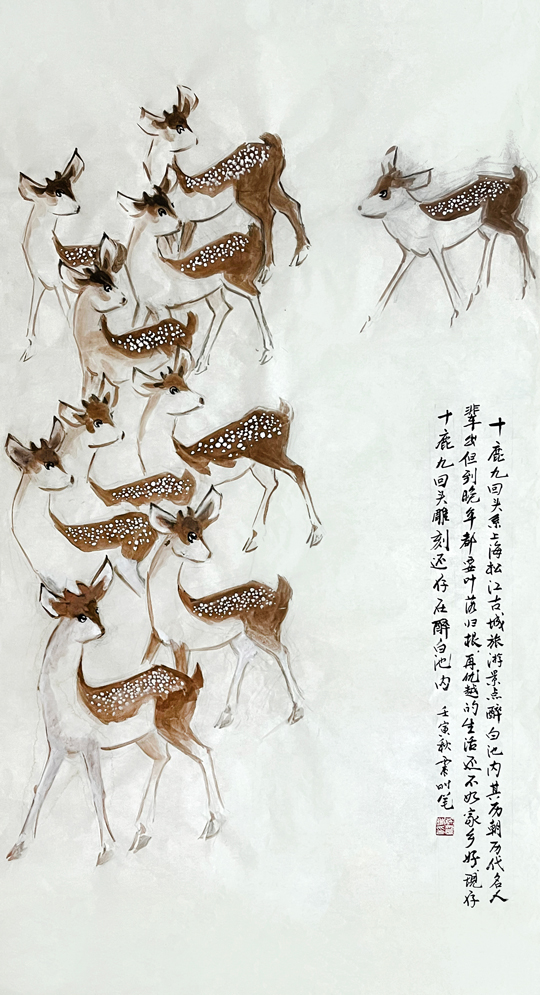 十鹿九回头系上海松江古城旅游景点醉白池内其历朝历代名人
辈出但到晚年都要叶落归根再优越的生活还不如家乡好现存
十鹿九回头雕刻还存在醉白池内 壬寅秋